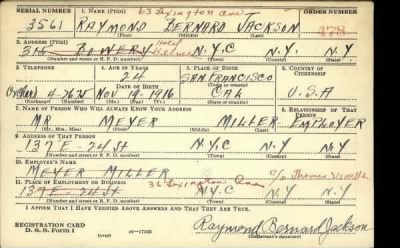 SERIAL NUMBER 1. NAME (Print) 63 Lexington Ave ORDER NUMBER
3561 RAYMOND BERNARD JACKSON 478
2. ADDRESS (Print)
315 BOWERY Hotel N.Y.C N.Y. N.Y
(Number and street or R. F. D. number) (Town) (County) (State)
3. TELEPHONE 4. AGE IN YEARS 5. PLACE OF BIRTH 6. COUNTRY OF CITIZENSHIP
24 SAN FRANCISCO
DATE OF BIRTH
4-7625 NOV 19-1916 CAL U.S.A
(Exchange) (Number) (Mo.) (Day) (Yr.) (State or country)
7. NAME OF PERSON WHO WILL ALWAYS KNOW YOUR ADDRESS 8. RELATIONSHIP OF THAT PERSON
MR MEYER MILLER EMPLOYER
(Mr., Mrs., Miss) (First) (Middle) (Last)
9. ADDRESS OF THAT PERSON
137 E-24 St N.Y.C N.Y N.Y
(Number and street or R. F. D. number) (Town) (County) (State)
10. EMPLOYER'S NAME
MEYER MILLER c/o Thomas
11. PLACE OF EMPLOYMENT OR BUSINESS 36 Lexington Ave
137 E-24 St N.Y.C N.Y N.Y
(Number and street or R. F. D. number) (Town) (County) (State)
I AFFIRM THAT I HAVE VERIFIED ABOVE ANSWERS AND THAT THEY ARE TRUE.
REGISTRATION CARD
D. S. S. Form 1 (over) 16-17105 Raymond Bernard Jackson
(Registrant's signature)